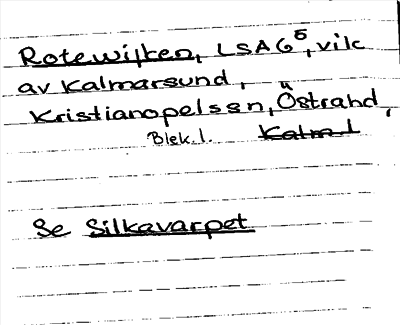 Rotewijken, LSAG⁵, vik
av Kalmarsund,
Kristianopels sn, Östra hd,
Blek. l. Kalm l
Se Silkavarpet